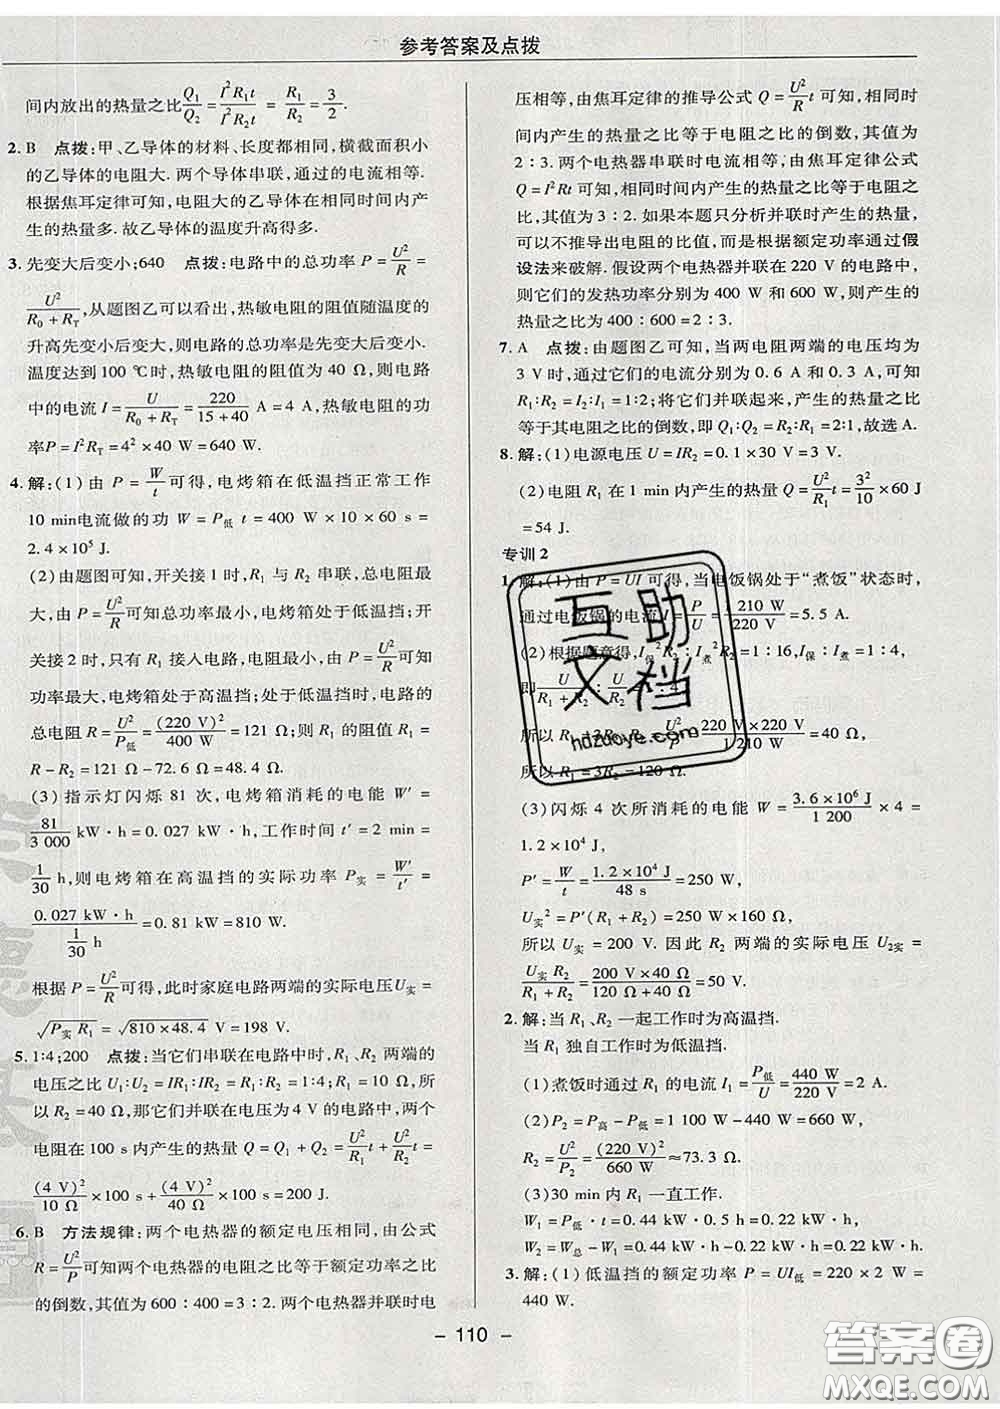 参考答案及点拨
间内放出的热量之比Q₁/Q₂=I²R₁t/I²R₂t = R₁/R₂=3/2.
2. B 点拨:甲、乙导体的材料、长度都相同,横截面积小
的乙导体的电阻大. 两个导体串联,通过的电流相等.
根据焦耳定律可知,电阻大的乙导体在相同时间内产
生的热量多. 故乙导体的温度升高得多.
3. 先变大后变小;640 点拨:电路中的总功率 P=U²/R=
U²/(R₀+R_T),从题图乙可以看出,热敏电阻的阻值随温度的
升高先变小后变大,则电路的总功率是先变大后变小.
温度达到 100 ℃时,热敏电阻的阻值为 40 Ω,则电路
中的电流 I=U/(R₀+R_T)=220/(15+40) A=4 A,热敏电阻的功
率P=I²R_T=4²×40 W=640 W.
4. 解:(1)由 P=W/t可得,电烤箱在低温挡正常工作
10 min电流做的功 W=P低 t=400 W×10×60 s=
2.4×10⁵ J.
(2)由题图可知,开关接 1 时,R₁ 与 R₂ 串联,总电阻最
大,由 P=U²/R可知总功率最小,电烤箱处于低温挡;开
关接 2 时,只有 R₁ 接入电路,电阻最小,由 P=U²/R可知
功率最大,电烤箱处于高温挡;处于低温挡时,电路的
总电阻 R=U²/P低=(220 V)²/400 W=121 Ω;则 R₁ 的阻值 R₁=
R-R₂=121 Ω-72.6 Ω=48.4 Ω.
(3)指示灯闪烁 81 次,电烤箱消耗的电能 W′=
81/3 000 kW·h=0.027 kW·h,工作时间 t′=2 min=
1/30 h,则电烤箱在高温挡的实际功率 P实=W′/t′=
0.027 kW·h/(1/30 h)=0.81 kW=810 W.
根据 P=U²/R可得,此时家庭电路两端的实际电压U实=
√(P实 R₁)=√(810×48.4) V=198 V.
5. 1:4;200 点拨:当它们串联在电路中时,R₁、R₂ 两端的
电压之比 U₁:U₂=IR₁:IR₂=R₁:R₂=1:4;R₁=10 Ω,所
以 R₂=40 Ω,那它们并联在电压为 4 V 的电路中,两个
电阻在 100 s 内产生的热量 Q=Q₁+Q₂=U²/R₁ t+U²/R₂ t=
(4 V)²/10 Ω×100 s+(4 V)²/40 Ω×100 s=200 J.
6. B 方法规律:两个电热器的额定电压相同,由公式
R=U²/P可知两个电热器的电阻之比等于额定功率之比
的倒数,其值为 600∶400=3∶2. 两个电热器并联时电
压相等,由焦耳定律的推导公式 Q=U²/R t 可知,相同时
间内产生的热量之比等于电阻之比的倒数,其值为
2∶3. 两个电热器串联时电流相等,由焦耳定律公式
Q=I²Rt 可知,相同时间内产生的热量之比等于电阻之
比,其值为 3∶2. 如果本题只分析并联时产生的热量,
可以不推导出电阻的比值,而是根据额定功率通过假
设法来破解. 假设两个电热器并联在 220 V 的电路中,
则它们的发热功率分别为 400 W 和 600 W,则产生的
热量之比为 400∶600=2∶3.
7. A 点拨:由题图乙可知,当两电阻两端的电压均为
3 V 时,通过它们的电流分别为 0.6 A 和 0.3 A,可知
R₁:R₂=I₂:I₁=1:2;将它们并联起来,产生的热量之比
等于其电阻之比的倒数,即 Q₁:Q₂=R₂:R₁=2:1,故选 A.
8. 解:(1)电源电压 U=IR₂=0.1×30 V=3 V.
(2)电阻 R₁ 在 1 min 内产生的热量 Q=U²/R₁ t=3²/10×60 J
=54 J.
专训 2
1. 解:(1)由 P=UI 可得,当电饭锅处于“煮饭”状态时,
通过电饭锅的电流 I=P/U=1 210 W/220 V=5.5 A.
(2)根据题意得,I保²R₂∶I煮²R₂=1∶16,I保∶I煮=1∶4,
即U/(R₁+R₂)∶U/R₂=1∶4
所以 R₁=3R₂ R₂=U²/P=220 V×220 V/1 210 W=40 Ω,
所以 R₁=3R₂=120 Ω.
(3)闪烁 4 次所消耗的电能 W=3.6×10⁶ J/1 200×4=
1.2×10⁴ J,
P′=W/t=1.2×10⁴ J/48 s=250 W,
U实²=P′(R₁+R₂)=250 W×160 Ω,
所以 U实=200 V. 因此 R₂ 两端的实际电压 U₂实=
U实 R₂/(R₁+R₂)=200 V×40 Ω/(120 Ω+40 Ω)=50 V.
2. 解:当 R₁、R₂ 一起工作时为高温挡.
当 R₁ 独自工作时为低温挡.
(1)煮饭时通过 R₁ 的电流 I₁=P低/U=440 W/220 V=2 A.
(2)P₂=P高-P低=1 100 W-440 W=660 W,
R₂=U²/P₂=(220 V)²/660 W≈73.3 Ω.
(3)30 min 内 R₁ 一直工作.
W₁=P低·t=0.44 kW×0.5 h=0.22 kW·h,
W₂=W总-W₁=0.44 kW·h-0.22 kW·h=0.22 kW·h.
3. 解:(1)低温挡的额定功率 P=UI低=220×2 W=
440 W.
互助
文档
hdzuoye.com
- 110 -
答案圈
MXQE.COM